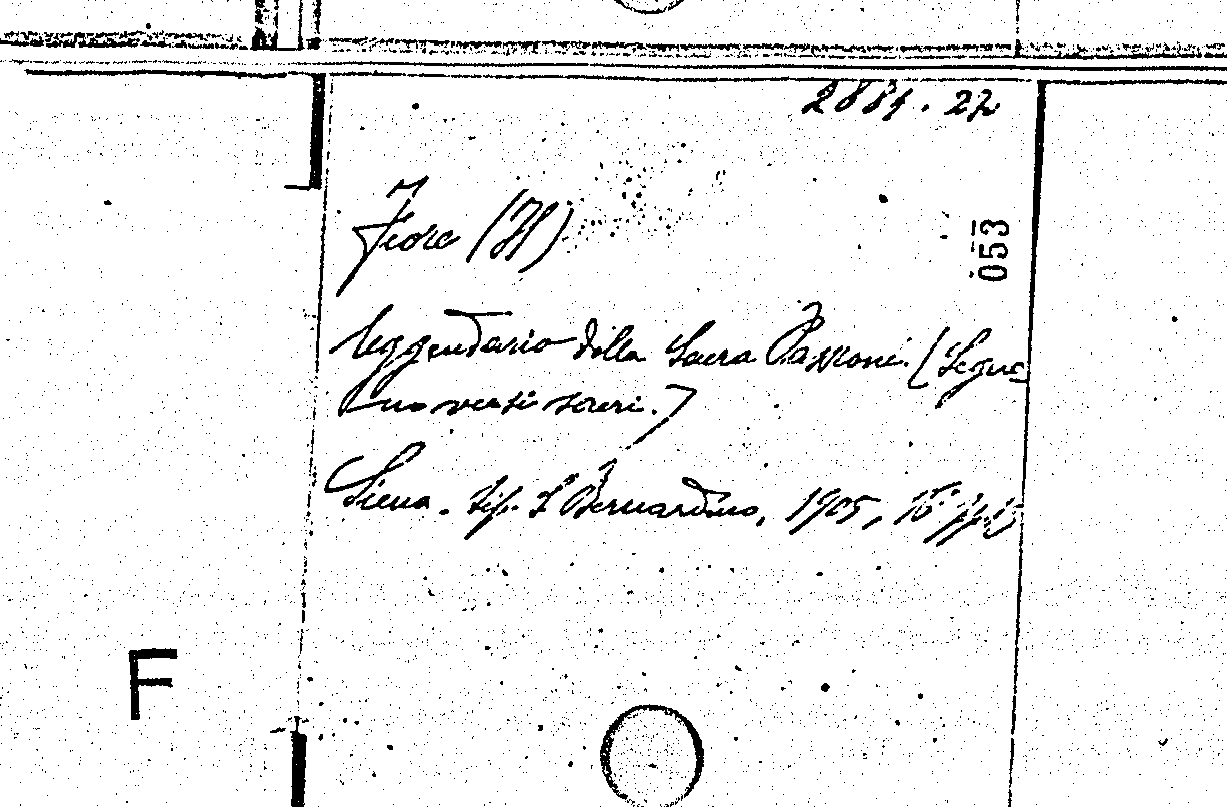 2884.27
Fiore (Il)
053
leggendario della Sacra Passione. [Segue-
no versi sacri.]
Siena. Tip. S Bernardino, 1905, 16° pp.
F